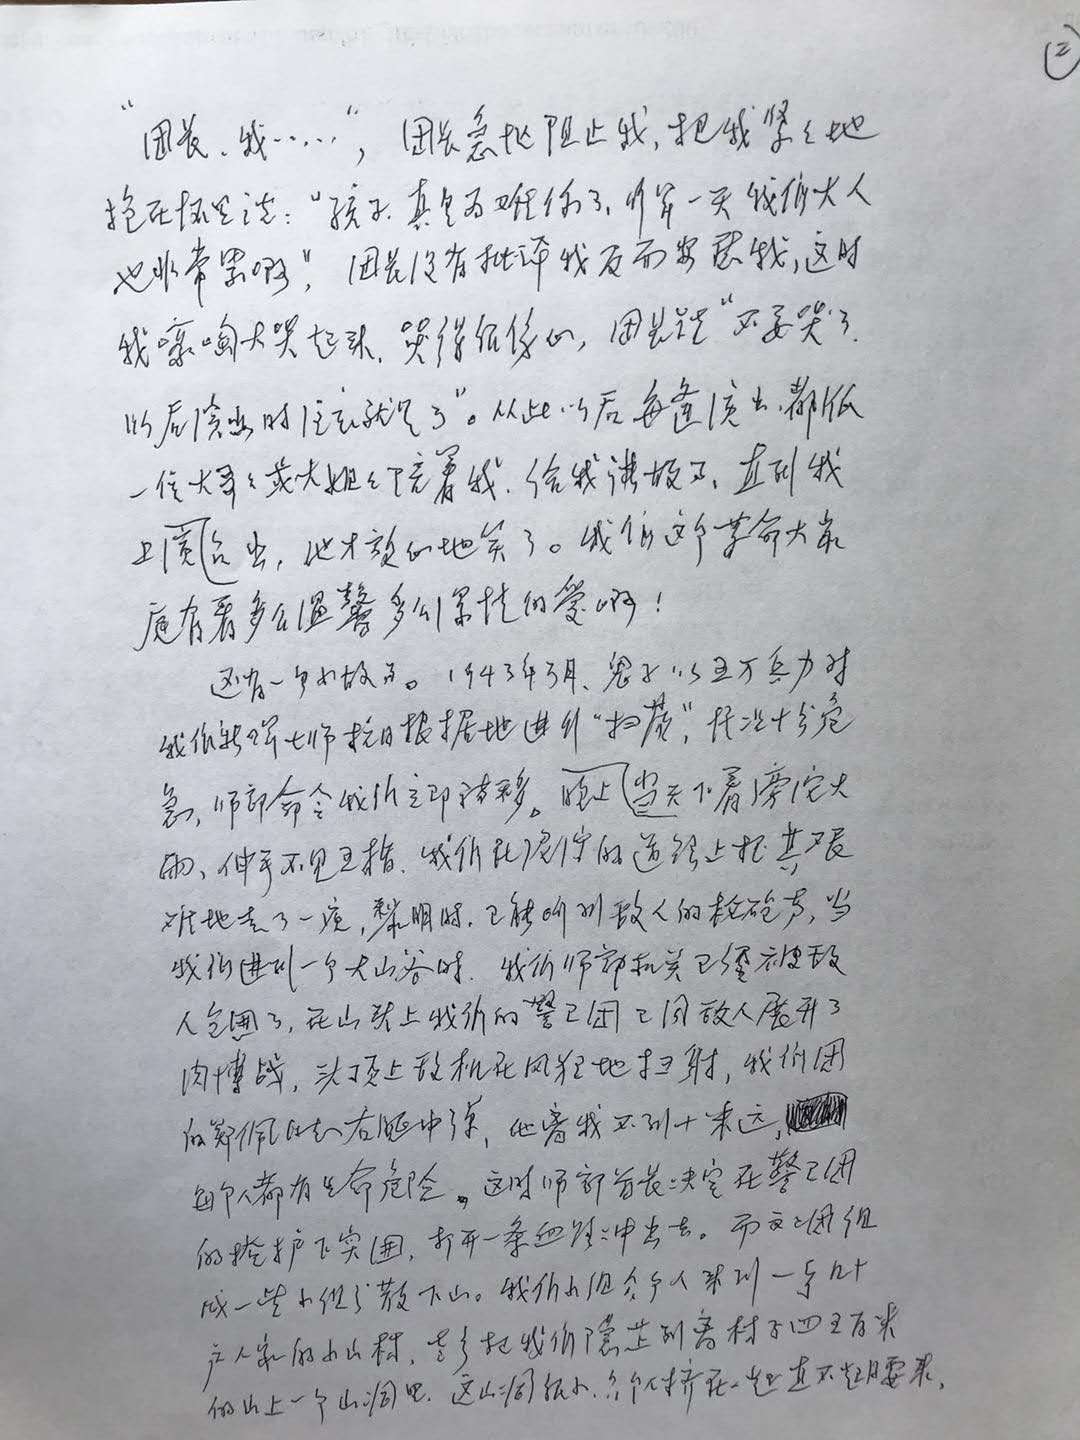 ②
"团长、我……"，团长急忙阻止我，把我紧々地
抱在怀里说："孩子、真是为难你了，行军一天我们大人
也非常累啊"，团长没有批评我反而安慰我，这时
我嚎啕大哭起来，哭得很伤心，团长说"不要哭了，
以后演出时注意就是了"。从此以后每逢演出，都派
一位大哥々或大姐々陪着我，给我讲故事，直到我
上演台出，他才放心地笑了。我们这个革命大家
庭有着多么温馨多么深情的爱啊！
还有一个小故事。1943年3月、鬼子以五万兵力对
我们新四军七师抗日根据地进行"扫荡"，情况十分危
急，师部命令我们立即转移。晚上当天下着滂沱大
雨、伸手不见五指，我们在泥泞的道路上极其艰
难地走了一夜，黎明时，已能听到敌人的枪砲声，当
我们进到一个大山谷时，我们师部机关已经被敌
人包围了，在山头上我们的警卫团已同敌人展开了
肉博战，头顶上敌机在风狂地扫射，我们团
的郑佩 右腿中弹，他离我不到十米远，
每个人都有生命危险。这时师部首长决定在警卫团
的掩护下突围，打开一条血路冲出去。而文工团组
成一些小组分散下山。我们小组六个人来到一 几十
户人家的小山村，老乡把我们隐蔽到离村子四五百米
的山上一个山洞里，这山洞很小、六个人挤在一起直不起腰来，